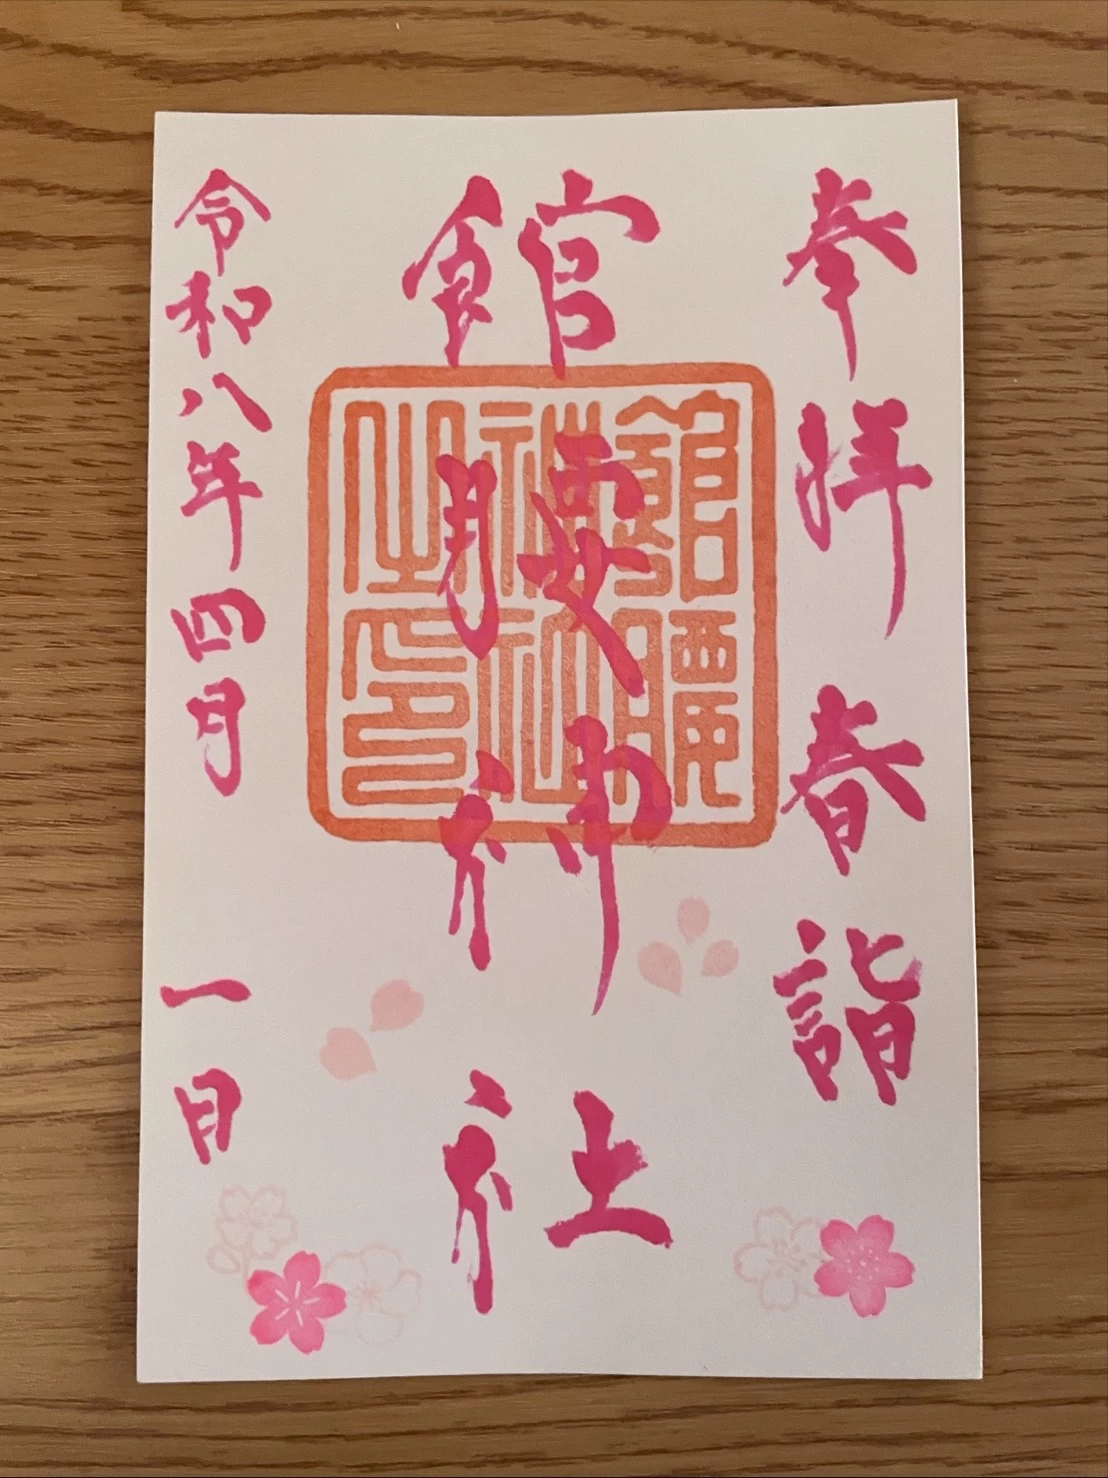 奉拝 春詣
館腰神社
館腰神社之印
令和八年四月一日